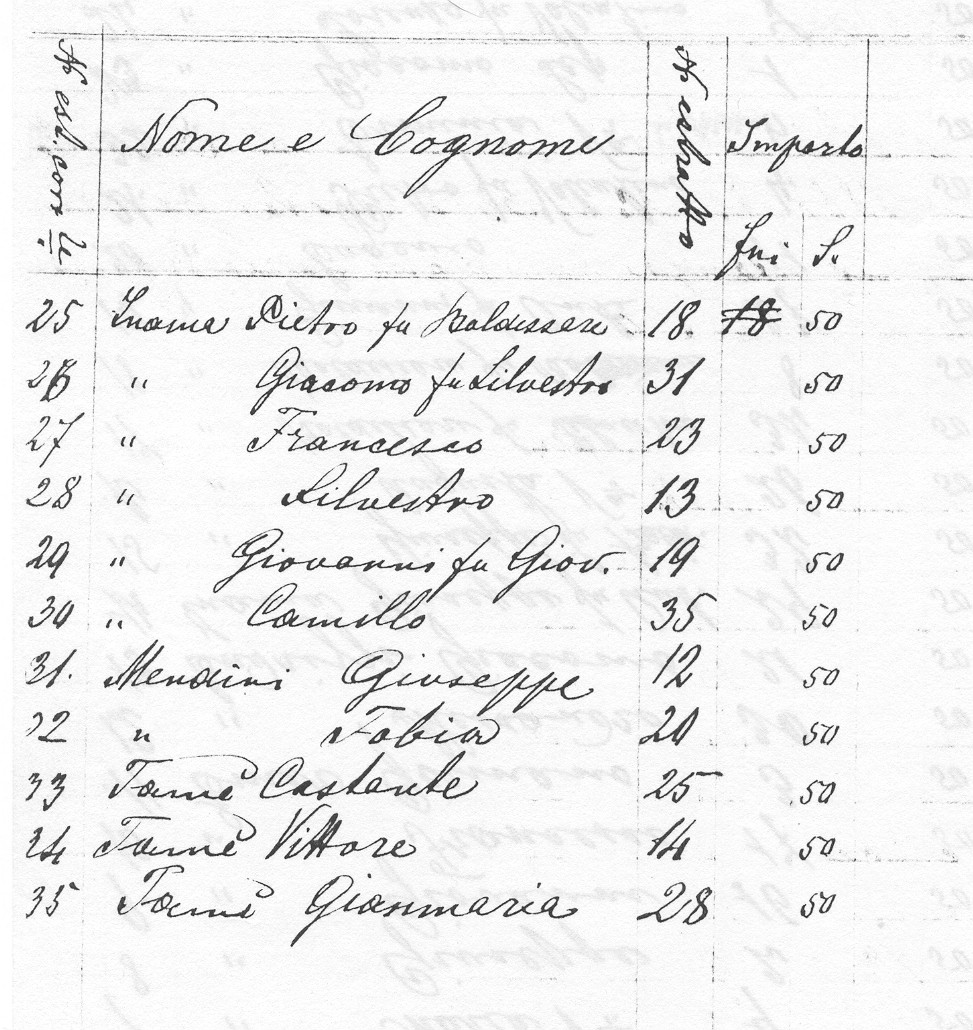 Nome e Cognome
N. estratto
Importo
fni S.
25 Inama Pietro fu Baldassare 18. 18 50
26 " Giacomo fu Silvestro 31 50
27 " Francesco 23 50
28 " Silvestro 13 50
29 " Giovanni fu Giov. 19 50
30 " Camillo 35 50
31. Mendini Giuseppe 12 50
32 " Fabio 20 50
33 Tamè Costante 25 50
34 Tamè Vittore 14 50
35 Tamè Gianmaria 28 50